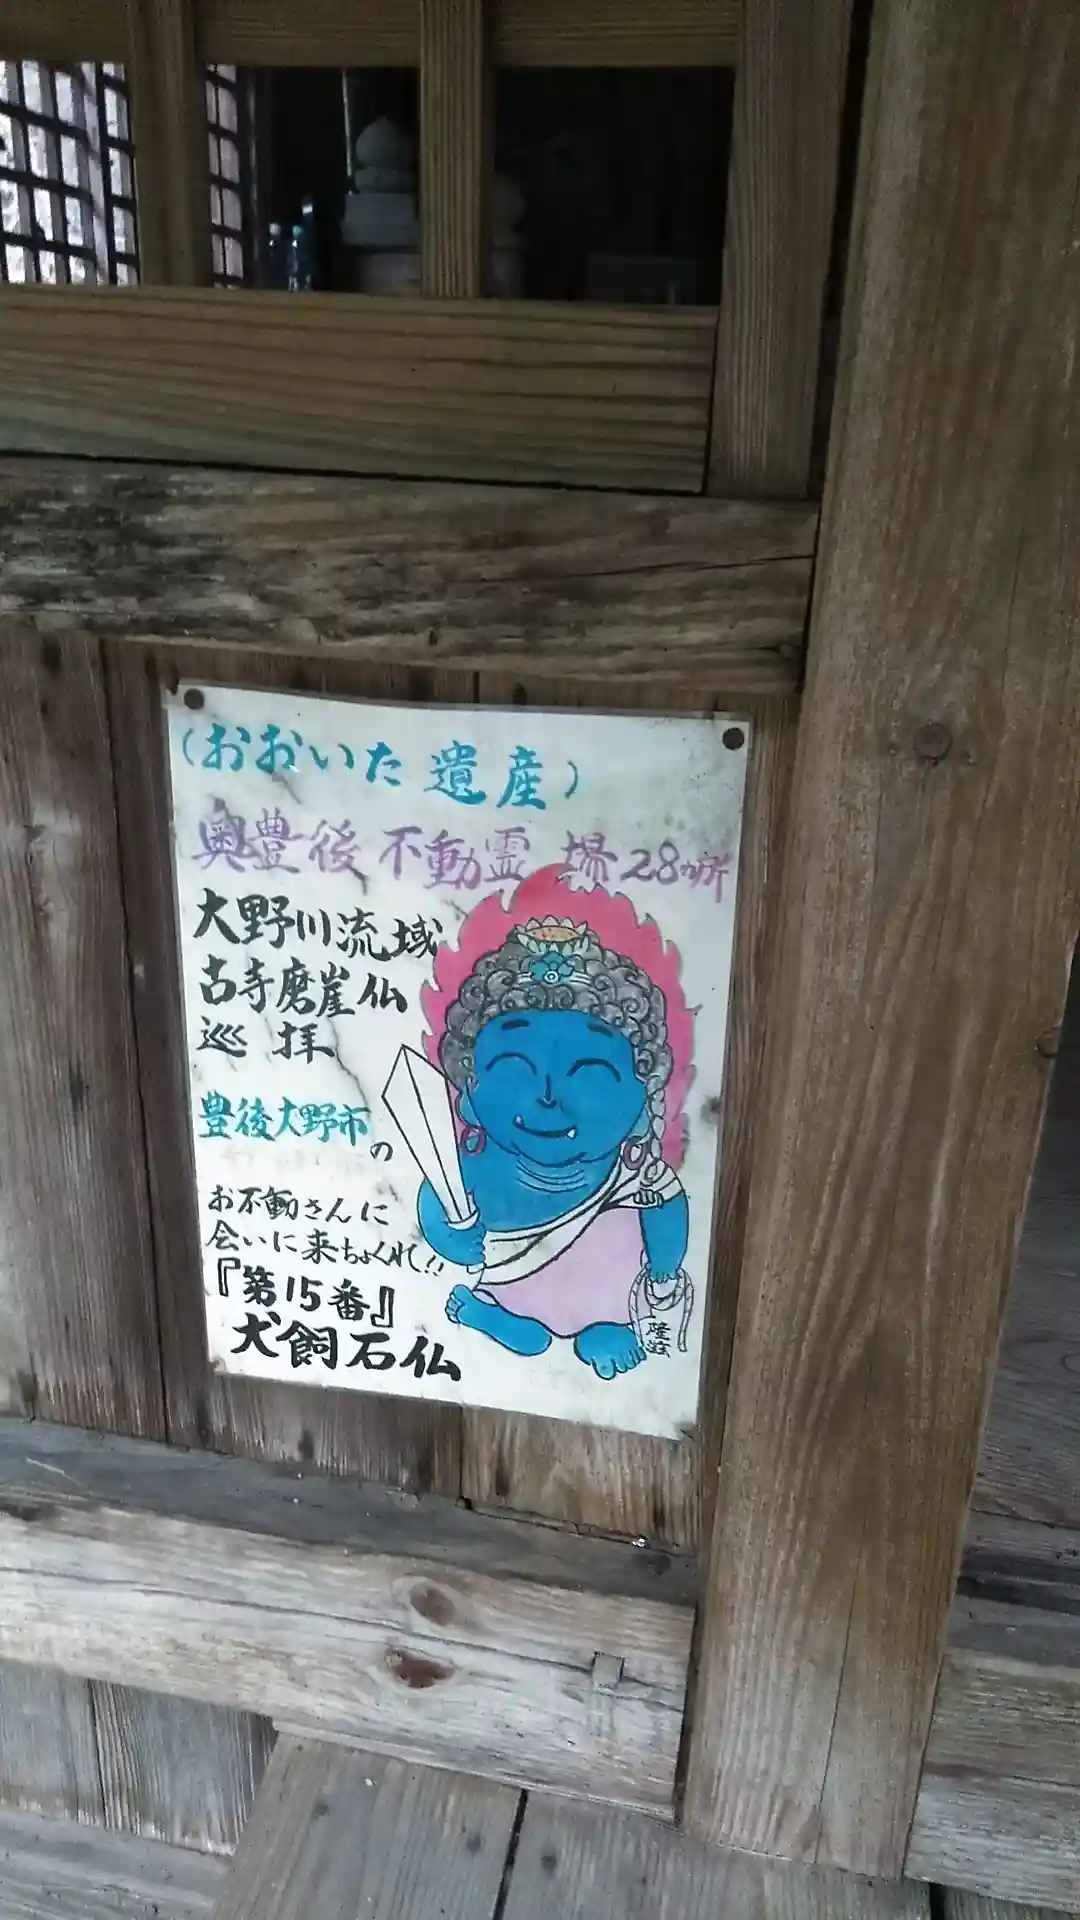 (おおいた遺産)
奥豊後不動霊場28カ所
大野川流域
古寺磨崖仏
巡拝
豊後大野市
の
お不動さんに
会いに来ちょくれ!!
『第15番』
犬飼石仏